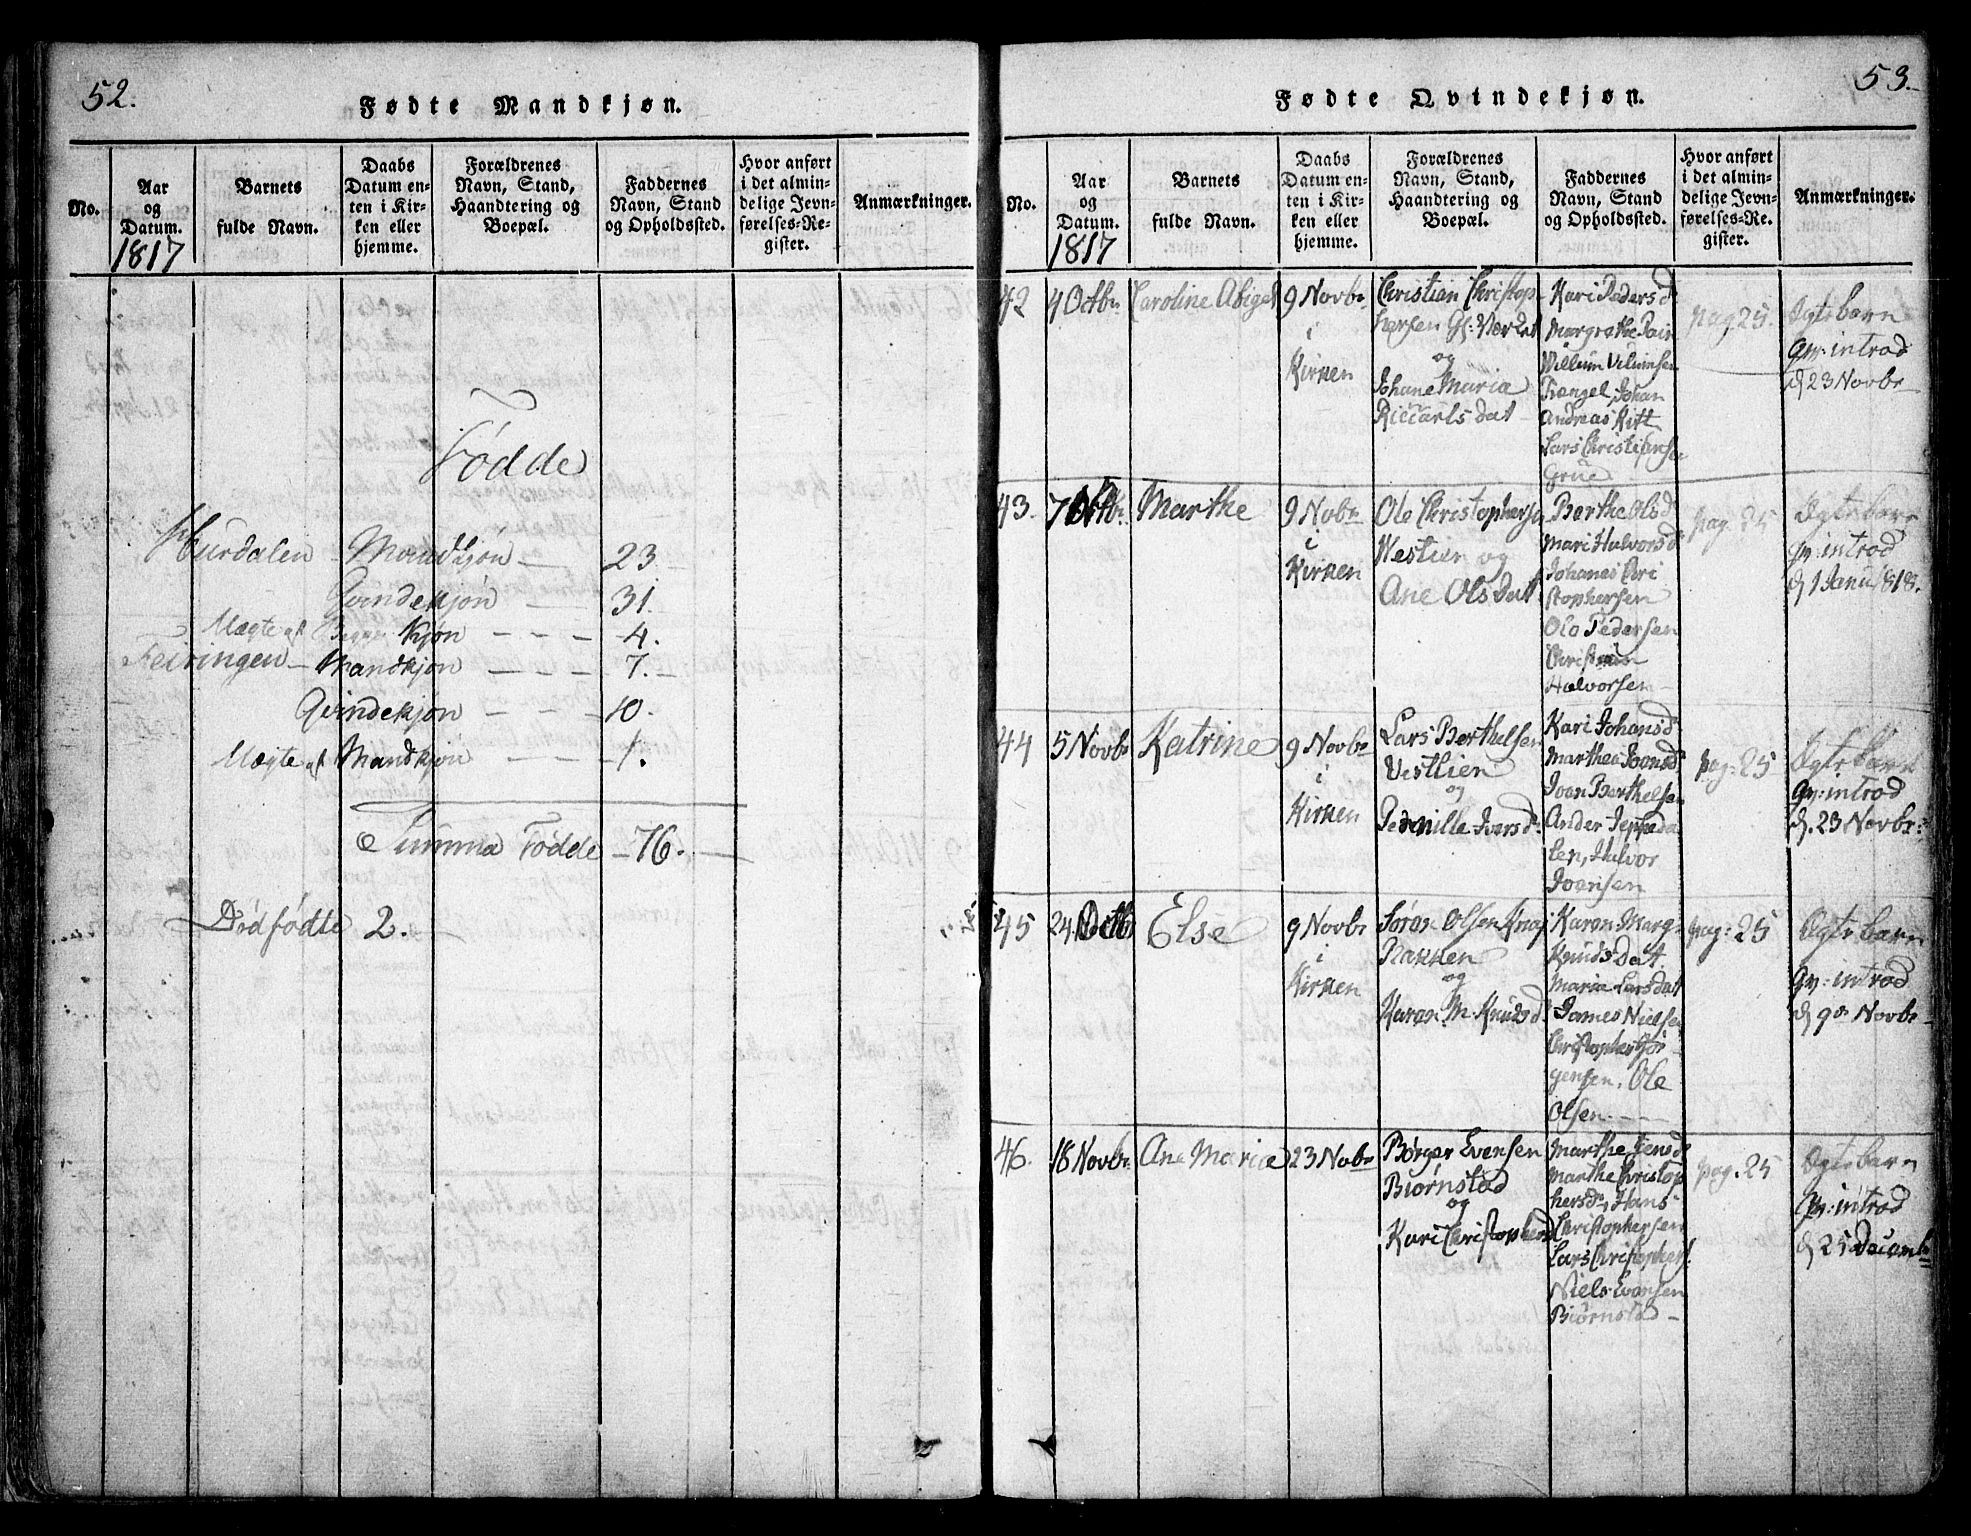 52.
Fødte Mandkjøn.
No.
Aar
og
Datum.
1817
Barnets
fulde Navn.
Daabs
Datum en-
ten i Kir-
ken eller
hjemme.
Forældrenes
Navn, Stand,
Haandtering og
Boepæl.
Faddernes
Navn, Stand
og Opholdssted.
Hvor anført
i det almin-
delige Jevn-
førelses-Re-
gister.
Anmærkninger.
Fødde
Hurdalen Mandkjøn — 23
Qvindekjøn — 31.
Uægte af Begge Kjøn - - - 4.
Feiringen — Mandkjøn - - - 7.
Qvindekjøn - - 10.
Uægte af Mandkjøn - - - 1.
Summa Fødde — 76.
Dødfødte 2.
53.
Fødte Qvindekjøn.
No.
Aar
og
Datum.
1817
Barnets
fulde Navn.
Daabs
Datum en-
ten i Kir-
ken eller
hjemme.
Forældrenes
Navn, Stand,
Haandtering og
Boepæl.
Faddernes
Navn, Stand
og Opholdssted.
Hvor anført
i det almin-
delige Jevn-
førelses-Re-
gister.
Anmærkninger.
42
4 Octbr
Caroline Abigel
9 Novbr
i
Kirken
Christian Christop
hersen
og
Johane Maria
Riccarls Dat
Kari Peders d
Margrethe
Willum Vilumsen
Johan
Andreas
Lars Christiansen
Grue
pag 25.
Ægte barn
introd
d 23 Novbr
43.
7
Marthe
9 Nobr
i
Kirken
Ole Christophersen
Westlien og
Ane Ols Dat
Berthe Ols d
Mari Halvorsd
Johanes Chri
stophersen
Ole Pedersen
Christian
Halvorsen
pag. 25
Ægte barn
introd
d 1 Janu 1818.
44
5 Novbr
Katrine
9 Novbr
i
Kirken
Lars Berthelsen
Vestlien
og
Pernille Ivers d
Kari Johansd
Marthea Joensd
Joen Berthelsen
Ander Jeppeda
len, Halvor
Joensen
pag: 25
Ægte barn
introd
d. 23 Novbr:
45
24 Octb
Else
9 Novbr
i
Kirken
Søren Olsen
Bakken
og
Karen M Knuds d
Karen Marg:
Knuds Dat
Maria Lars dat
James Nielsen
Christopher Jør
gensen, Ole
Olsen
pag: 25
Ægte barn
introd
d 9de Novbr
46.
18 Novbr.
Ane Maria
23 Nobr
Børger Evensen
Biørnstad
og
Kari Christophersd
Marthe Jens d
Marthe Christop
hersd, Hans
Christophersen
Lars Christophers.
Niels Evensen
Biørnstad
pag. 25
Ægte barn
introd
d 25 Decembr